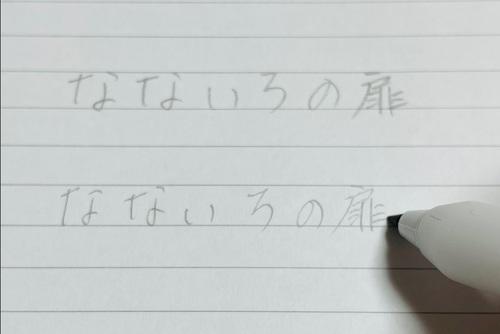 なないろの扉
なないろの扉